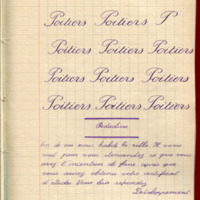 Poitiers Poitiers P
Poitiers Poitiers Poitiers
Poitiers Poitiers Poitiers
Poitiers Poitiers Poitiers
Rédaction
Un de vos amis habite la ville. Il vous
écrit pour vous demander ce que vous
avez l'intention de faire après que
vous aurez obtenu votre certificat
d'études. Vous lui répondez.
Développement